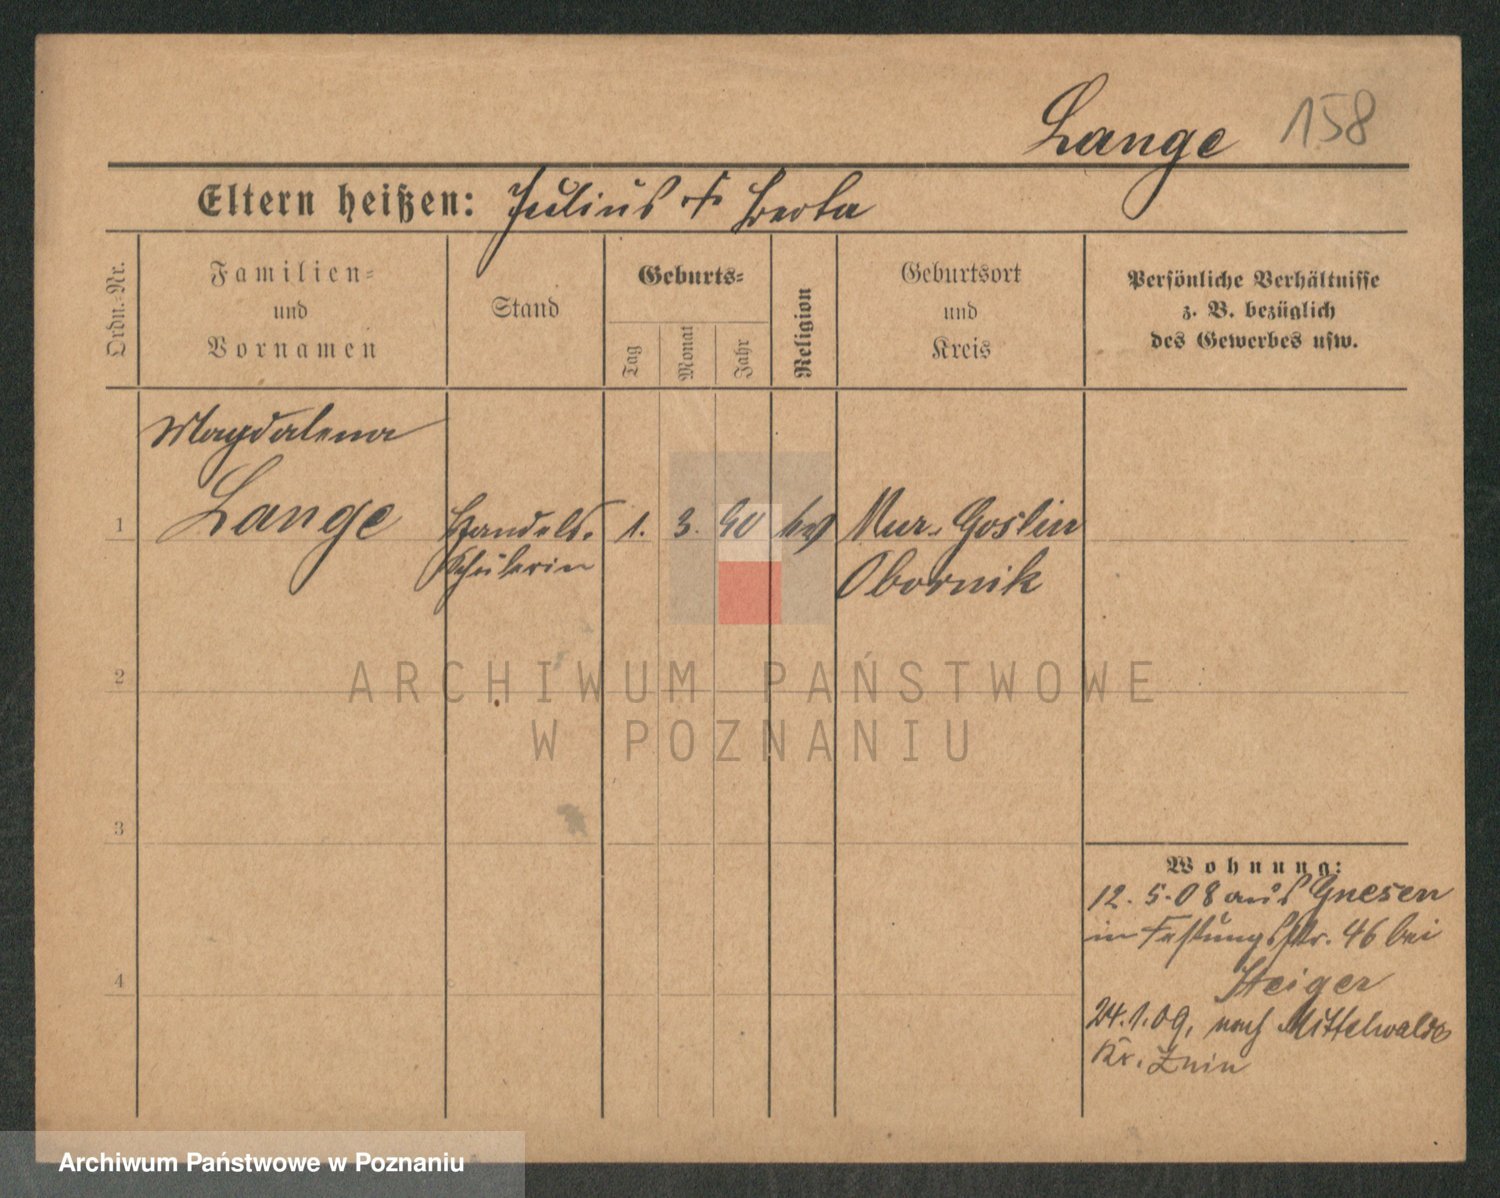 Lange 158
Eltern heißen: Julius & Berta
Ordn.-Nr.
Familien-
und
Vornamen
Stand
Geburts-
Tag
Monat
Jahr
Religion
Geburtsort
und
Kreis
Persönliche Verhältnisse
z. B. bezüglich
des Gewerbes usw.
Magdalena
1 Lange Handels- 1. 3. 90 Mur. Goslin
schülerin Obornik
2
3
4
Wohnung:
12. 5. 08 aus Gnesen
in Festungsstr. 46 bei
Steiger
24. 1. 09, nach Mittelwalde
Kr. Znin
ARCHIWUM PAŃSTWOWE
W POZNANIU
Archiwum Państwowe w Poznaniu